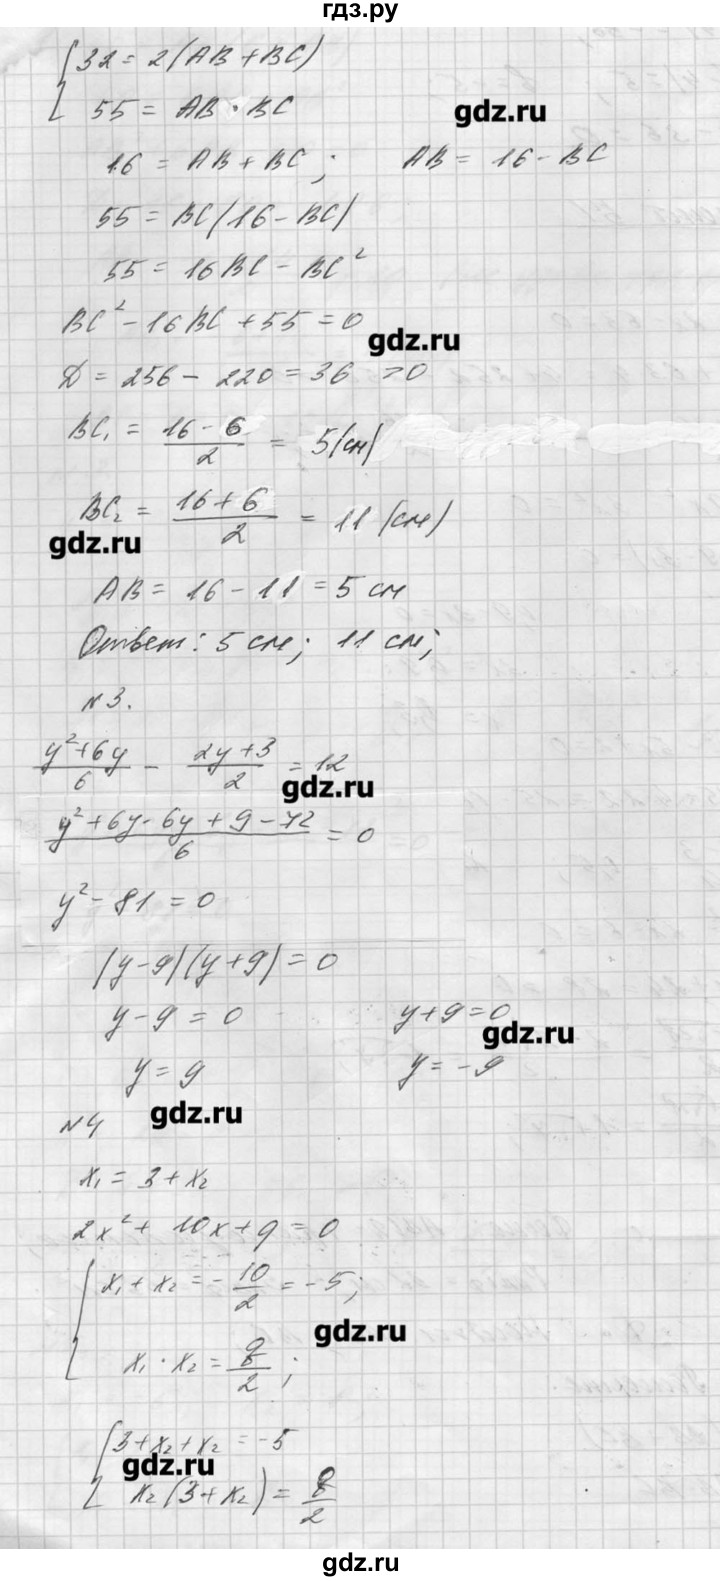 гдз.ру
32 = 2(AB + BC)
55 = AB · BC
gdz.ru
16 = AB + BC; AB = 16 - BC
55 = BC(16 - BC)
55 = 16BC - BC²
BC² - 16BC + 55 = 0
gdz.ru
D = 256 - 220 = 36 > 0
BC₁ = (16 - 6)/2 = 5(см)
BC₂ = (16 + 6)/2 = 11 (см)
gdz.ru
AB = 16 - 11 = 5 см
Ответ: 5 см; 11 см;
№3.
(y² + 6y)/6 - (2y + 3)/2 = 12
gdz.ru
(y² + 6y - 6y + 9 - 72)/6 = 0
y² - 81 = 0
(y - 9)(y + 9) = 0
y - 9 = 0 y + 9 = 0
gdz.ru
y = 9 y = -9
gdz.ru
№4
x₁ = 3 + x₂
2x² + 10x + q = 0
x₁ + x₂ = -10/2 = -5;
gdz.ru
x₁ · x₂ = q/2;
3 + x₂ + x₂ = -5
gdz.ru
x₂(3 + x₂) = q/2
gdz.ru